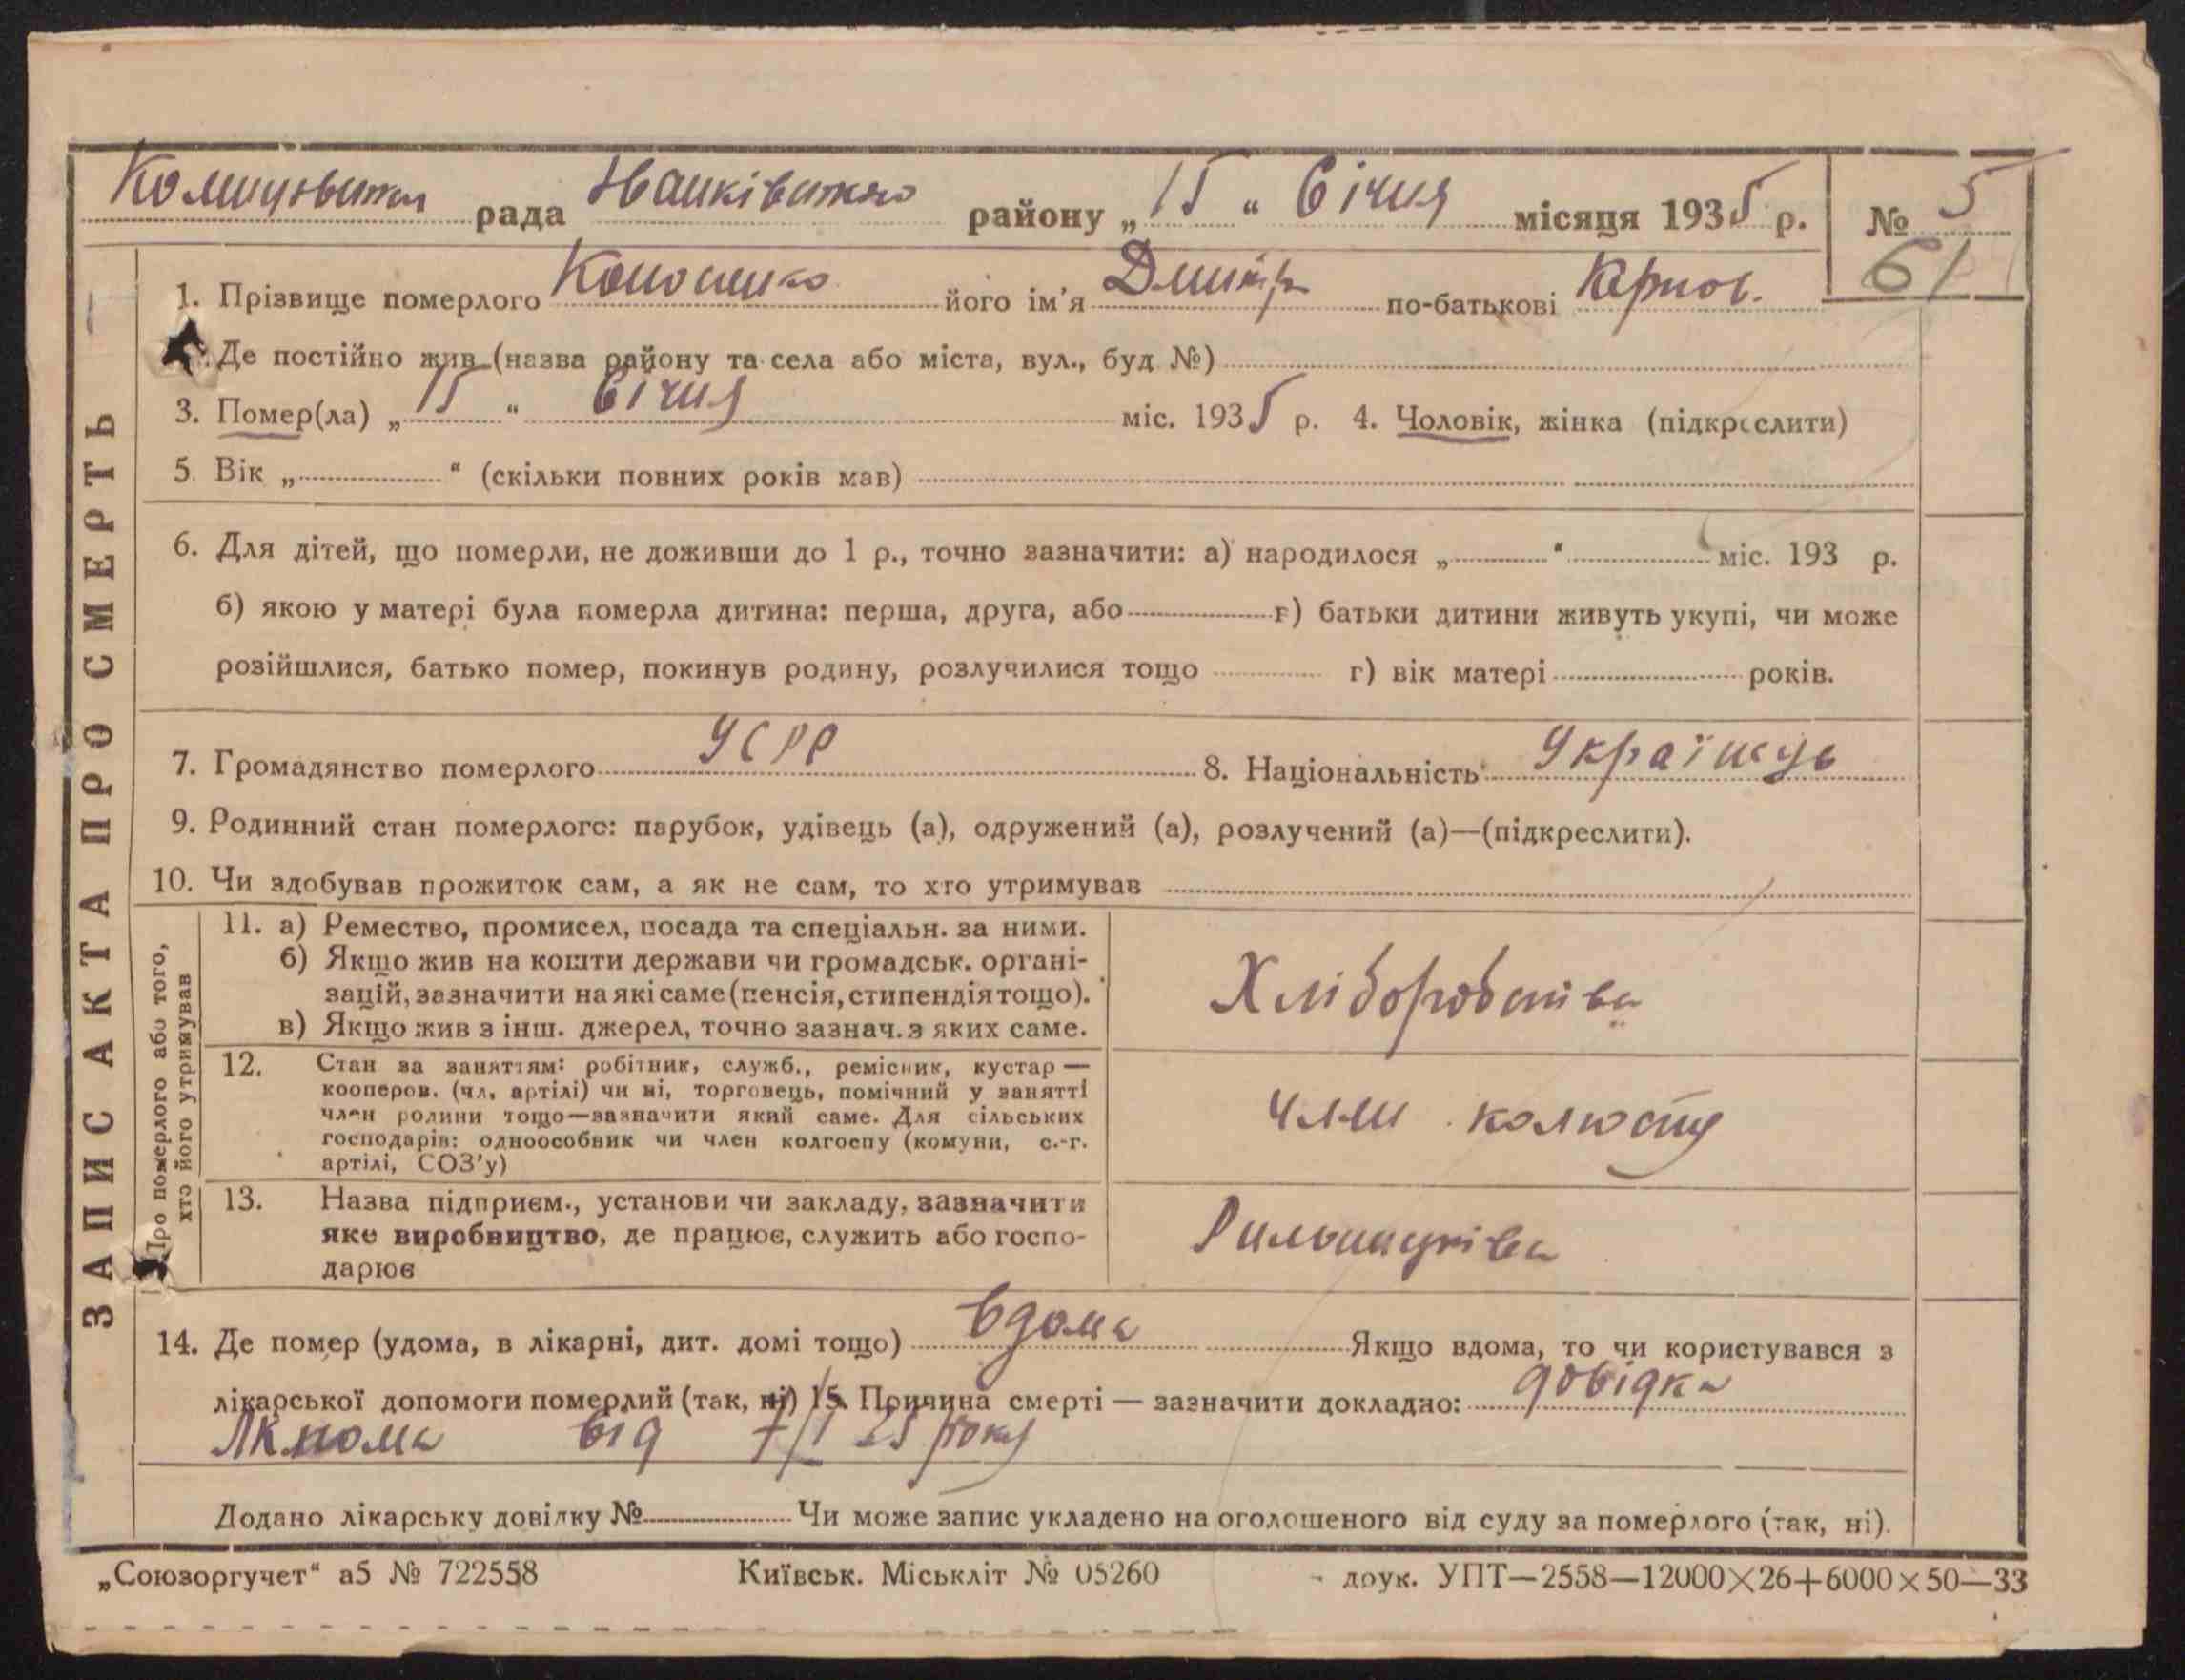 рада району „15 “ Січня місяця 1935 р. № 5
61
1. Прізвище померлого його ім'я Дмитр по-батькові
Де постійно жив (назва району та села або міста, вул., буд №)
3. Помер(ла) „15 “ Січня міс. 1935 р. 4. Чоловік, жінка (підкреслити)
5. Вік „ “ (скільки повних років мав)
6. Для дітей, що померли, не доживши до 1 р., точно зазначити: а) народилося „ “ міс. 193 р.
б) якою у матері була померла дитина: перша, друга, або г) батьки дитини живуть укупі, чи може
розійшлися, батько помер, покинув родину, розлучилися тощо г) вік матері років.
7. Громадянство померлого УСРР 8. Національність Українець
9. Родинний стан померлого: парубок, удівець (а), одружений (а), розлучений (а)—(підкреслити).
10. Чи здобував прожиток сам, а як не сам, то хто утримував
ЗАПИС АКТА ПРО СМЕРТЬ
Про померлого або того,
хто його утримував
11. а) Ремество, промисел, посада та спеціальн. за ними.
б) Якщо жив на кошти держави чи громадськ. органі-
зацій, зазначити на які саме (пенсія, стипендія тощо).
в) Якщо жив з інш. джерел, точно зазнач. з яких саме.
Хліборобства
12. Стан за заняттям: робітник, служб., ремісник, кустар —
кооперов. (чл. артілі) чи ні, торговець, помічний у занятті
член родини тощо—зазначити який саме. Для сільських
господарів: одноосібник чи член колгоспу (комуни, с.-г.
артілі, СОЗ'у)
член колгоспу
13. Назва підприєм., установи чи закладу, зазначити
яке виробництво, де працює, служить або госпо-
дарює
14. Де помер (удома, в лікарні, дит. домі тощо) вдома Якщо вдома, то чи користувався з
лікарської допомоги померлий (так, ні) 15. Причина смерті — зазначити докладно: довідка
від року
Додано лікарську довідку № Чи може запис укладено на оголошеного від суду за померлого (так, ні).
„Союзоргучет“ а5 № 722558 Київськ. Міськліт № 05260 друк. УПТ—2558—12000×26+6000×50—33